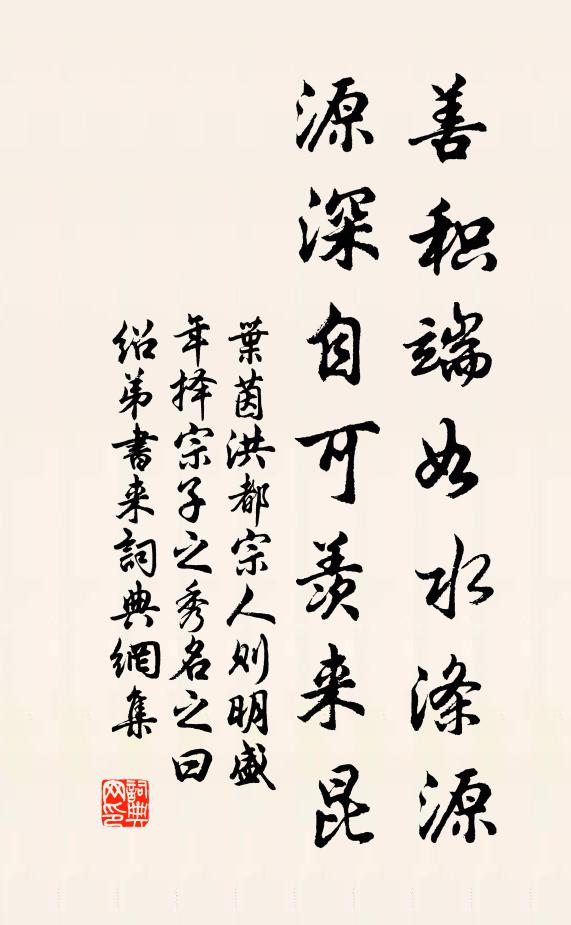 善积端如水涤源
源深自可羡来昆
葉茵洪都宗人则明盛
年择宗子之秀名之曰
绍弟書来詞典網集
詞典
网印